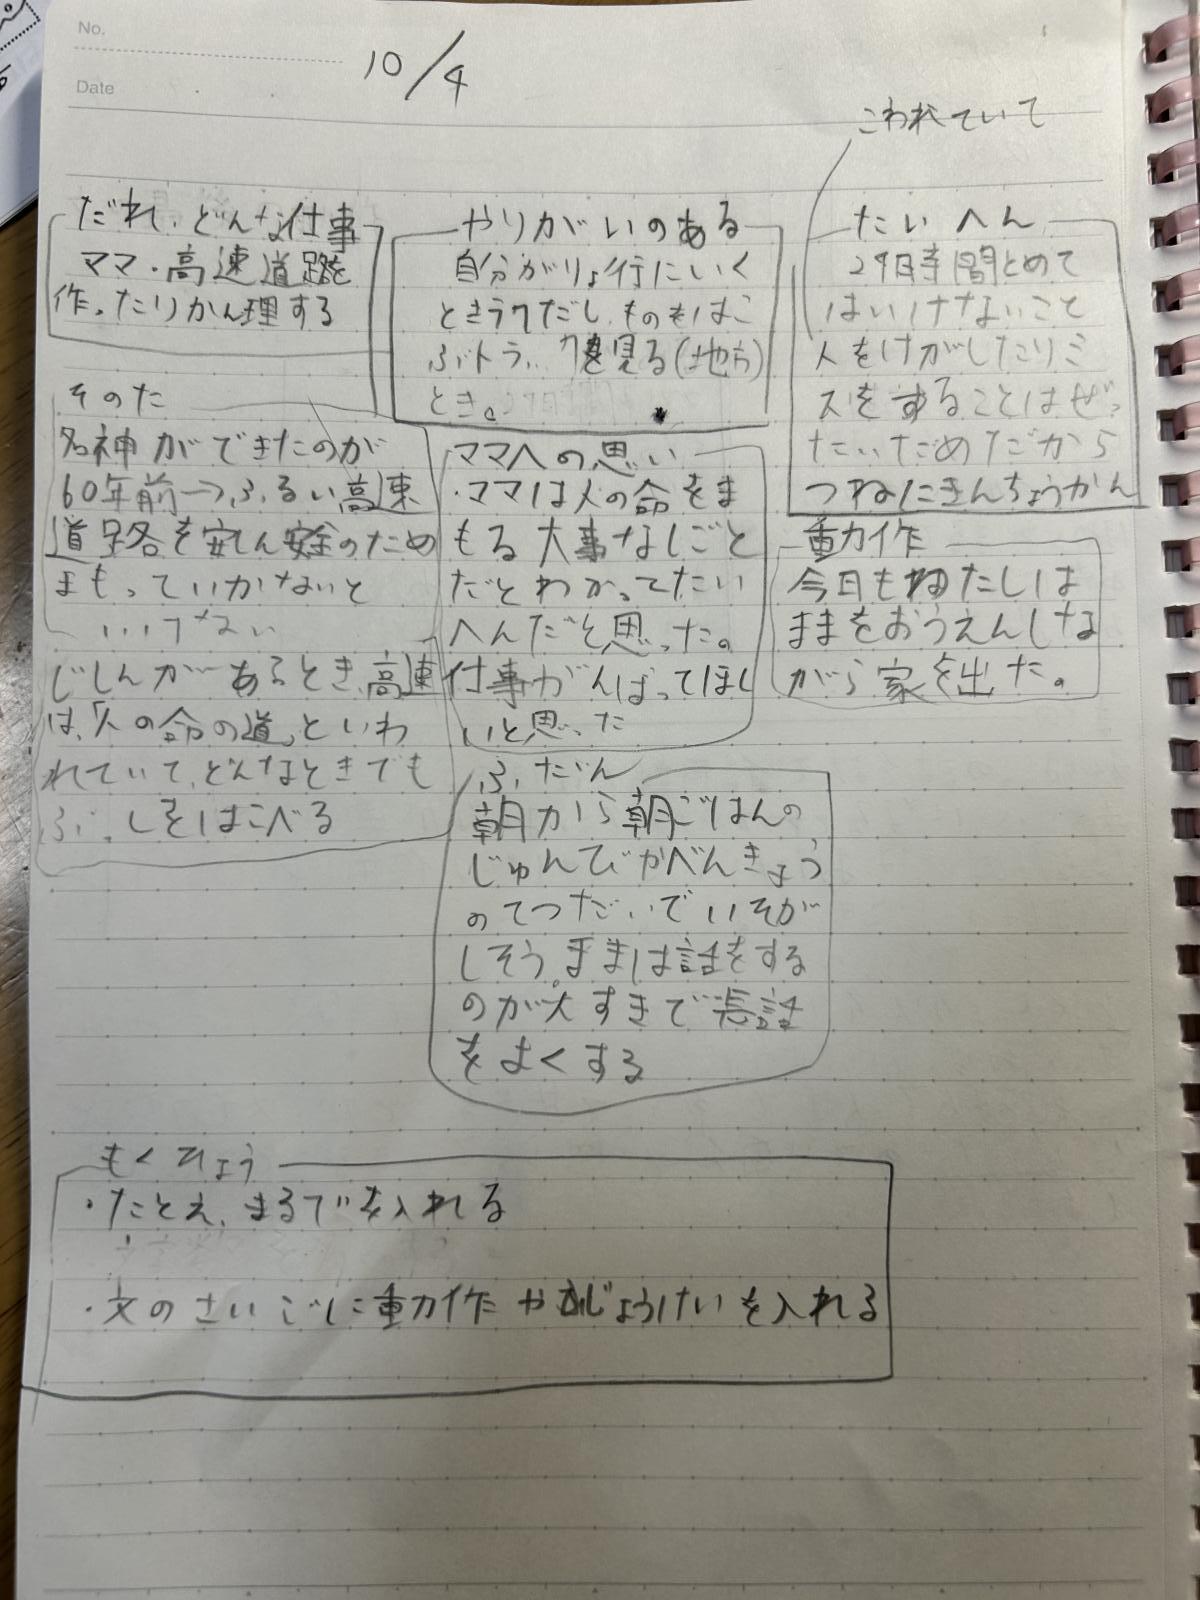 No.
Date
10/4
こわれていて
だれ、どんな仕事
ママ・高速道路を
作ったりかん理する
やりがいのある
自分がりょ行にいく
ときラクだし、ものもはこ
ぶトラックを見る(地方)
とき。
たいへん
24時間とめて
はいけないこと
人をけがしたりミ
スをすることはぜっ
たいだめだから
つねにきんちょうかん
そのた
名神ができたのが
60年前→ふるい高速
道路を安しん安全のため
まもっていかないと
いけない
じしんがあるとき、高速
は、「人の命の道」といわ
れていて、どんなときでも
ぶっしをはこべる
ママへの思い
・ママは人の命をま
もる大事なしごと
だとわかってたい
へんだと思った。
仕事がんばってほし
いと思った
動作
今日もわたしは
ままをおうえんしな
がら家を出た。
ふだん
朝から朝ごはんの
じゅんびかべんきょう
のてつだいでいそが
しそう。ままは話をする
のが大すきで長話
をよくする
もくひょう
・たとえ、まるでを入れる
・文のさいごに動作やじょうけいを入れる